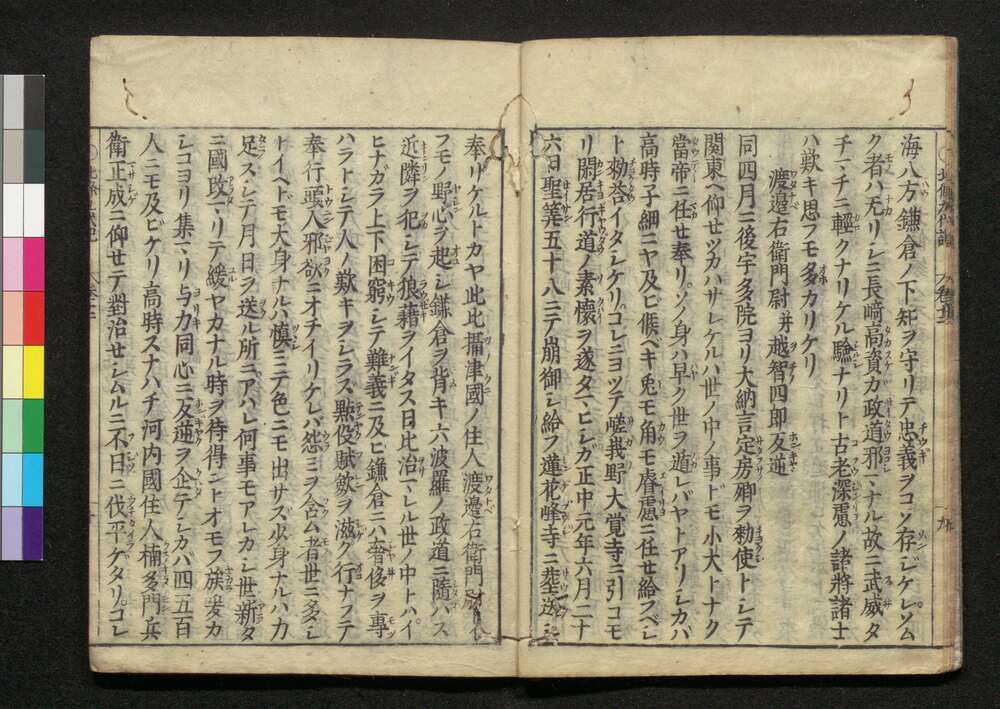 海八方鎌倉ノ下知ヲ守リテ忠義ヲコソ存ジケレソム
ク者ハ无リシニ長﨑高資ガ政道邪マナル故ニ武威タ
チマチニ輕クナリケル驗ナリト古老深慮ノ諸將諸士
ハ歎キ思フモ多カリケリ
渡邉右衛門尉并越智四郎反逆
同四月ニ後宇多院ヨリ大納言定房卿ヲ勅使トシテ
関東ヘ仰セツカハサレケルハ世ノ中ノ事ドモ小大トナク
當帝ニ任セ奉リソノ身ハ早ク世ヲ遁レバヤトアリシカハ
高時子細ニヤ及ビ候ベキ兎モ角モ睿慮ニ任セ給フベシ
ト勅答イタシケリコレニヨツテ嵯峩野大覚寺ニ引コモ
リ閑居行道ノ素懐ヲ遂タマヒシガ正中元年六月二十
六日聖筭五十八ニテ崩御シ給フ蓮花峰寺ニ葬送シ
奉リケルトカヤ此比攝津國ノ住人渡邉右衛門尉トイ
フモノ野心ヲ起シ鎌倉ヲ背キ六波羅ノ政道ニ隨ハス
近隣ヲ犯シテ狼藉ヲイタス日比治マレル世ノ中トハイ
ヒナガラ上下困窮シテ難義ニ及ビ鎌倉ニハ奢侈ヲ專
ハラトシテ人ノ歎キヲシラズ點役賦歛ヲ滋ク行ナフテ
奉行頭人邪欲ニオチイリケレバ怨ミヲ含ム者世ニ多シ
トイヘトモ大身ナルハ慎ミテ色ニモ出サズ小身ナルハカ
足ラスシテ月日ヲ送ル所ニアハレ何事モアレカシ世新タ
ニ國改マリテ緩ヤカナル時ヲ待得ントオモフ族爰カ
シコヨリ集マリ与力同心ニ反逆ヲ企テシカバ四五百
人ニモ及ビケリ高時スナハチ河内國住人楠多門兵
衛正成ニ仰セテ對治セシムルニ不日ニ伐平ケタリコレ